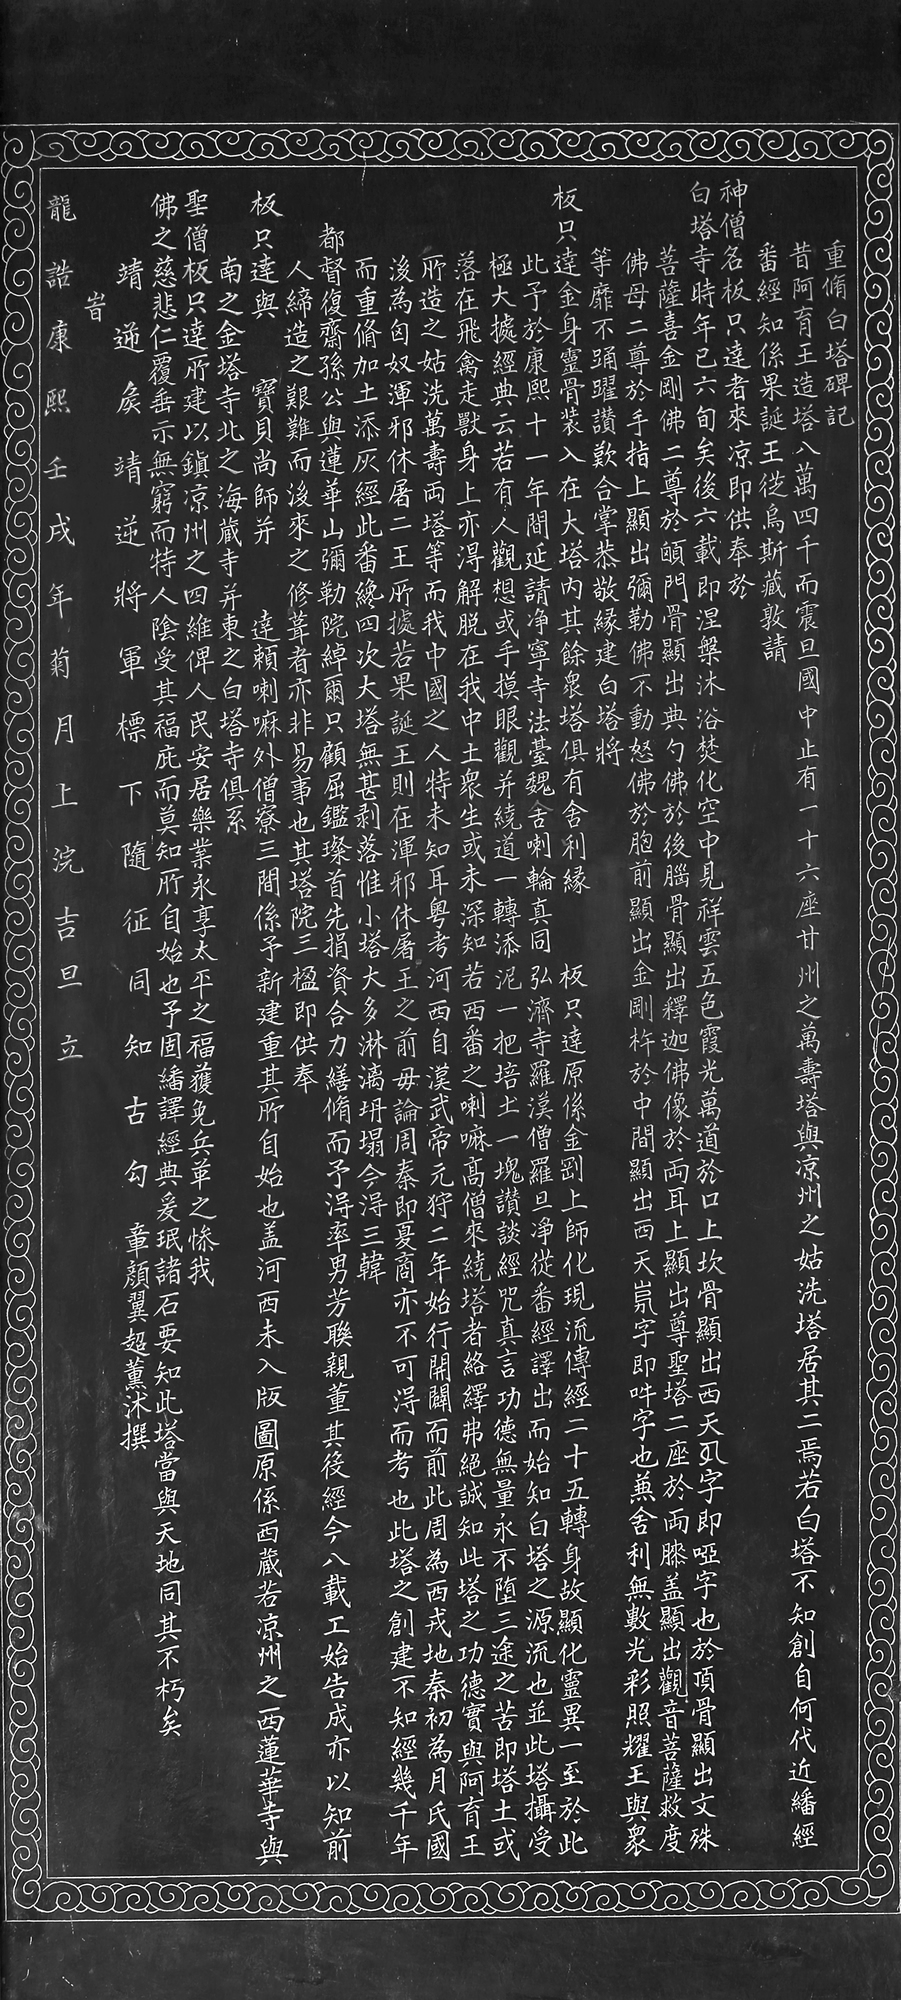 重脩白塔碑記
昔阿育王造塔八萬四千而震旦國中止有一十六座甘州之萬壽塔與涼州之姑洗塔居其二焉若白塔不知創自何代近繙經
番經知係果誕王從烏斯藏敦請
神僧名板只達者來涼即供奉於
白塔寺時年已六旬矣後六載即涅槃沐浴焚化空中見祥雲五色霞光萬道於口上坎骨顯出西天字即啞字也於頂骨顯出文殊
菩薩喜金剛佛二尊於頔門骨顯出典勺佛於後腦骨顯出釋迦佛像於兩耳上顯出尊聖塔二座於兩膝盖顯出觀音菩薩救度
佛母二尊於手指上顯出彌勒佛不動怒佛於胞前顯出金剛杵於中間顯出西天字即吽字也兼舍利無數光彩照耀王與衆
等靡不踊躍讃歎合掌恭敬緣建白塔將
板只達金身靈骨装入在大塔內其餘衆塔俱有舍利緣 板只達原係金剛上師化現流傳經二十五轉身故顯化靈異一至於此
此予於康熙十一年間延請净寧寺法臺魏舍喇輪真同 弘濟寺羅漢僧羅旦净從番經譯出而始知白塔之源流也並此塔攝受
極大據經典云若有人觀想或手摸眼觀并繞道一轉添泥一把培土一塊讃談經咒真言功德無量永不堕三途之苦即塔土或
落在飛禽走獸身上亦淂解脱在我中土衆生或未深知若西番之喇嘛高僧來繞塔者絡繹弗絕誠知此塔之功德實與阿育王
所造之姑洗萬壽两塔等而我中國之人特未知耳粤考河西自漢武帝元狩二年始行開闢而前此周為西戎地秦初為月氏國
後為匈奴渾邪休屠二王所據若果誕王則在渾邪休屠王之前毋論周秦即夏商亦不可淂而考也此塔之創建不知經幾千年
而重脩加土添灰經此番纔四次大塔無甚剥落惟小塔大多淋漓坍塌今淂三韓
都督復齋孫公與蓮華山彌勒院綽爾只顧屈鑑璨首先捐資合力繕脩而予淂率男芳聯親董其後經今八載工始告成亦以知前
人締造之艱難而後來之修葺者亦非易事也其塔院三楹即供奉
板只達與 寶貝尚師并 達賴喇嘛外僧寮三間係予新建重其所自始也盖河西未入版圖原係西藏若涼州之西蓮華寺與
南之金塔寺北之海藏寺并東之白塔寺俱系
聖僧板只達所建以鎮凉州之四維俾人民安居樂業永享太平之福獲免兵革之慘我
佛之慈悲仁覆垂示無窮而特人陰受其福庇而莫知所自始也予因繙譯經典爰珉諸石要知此塔當與天地同其不朽矣
靖逆矦靖逆將軍標下隨征同知古勾章顏翼超薰沐撰
峕
龍誥康熙壬戌年菊月上浣吉旦立